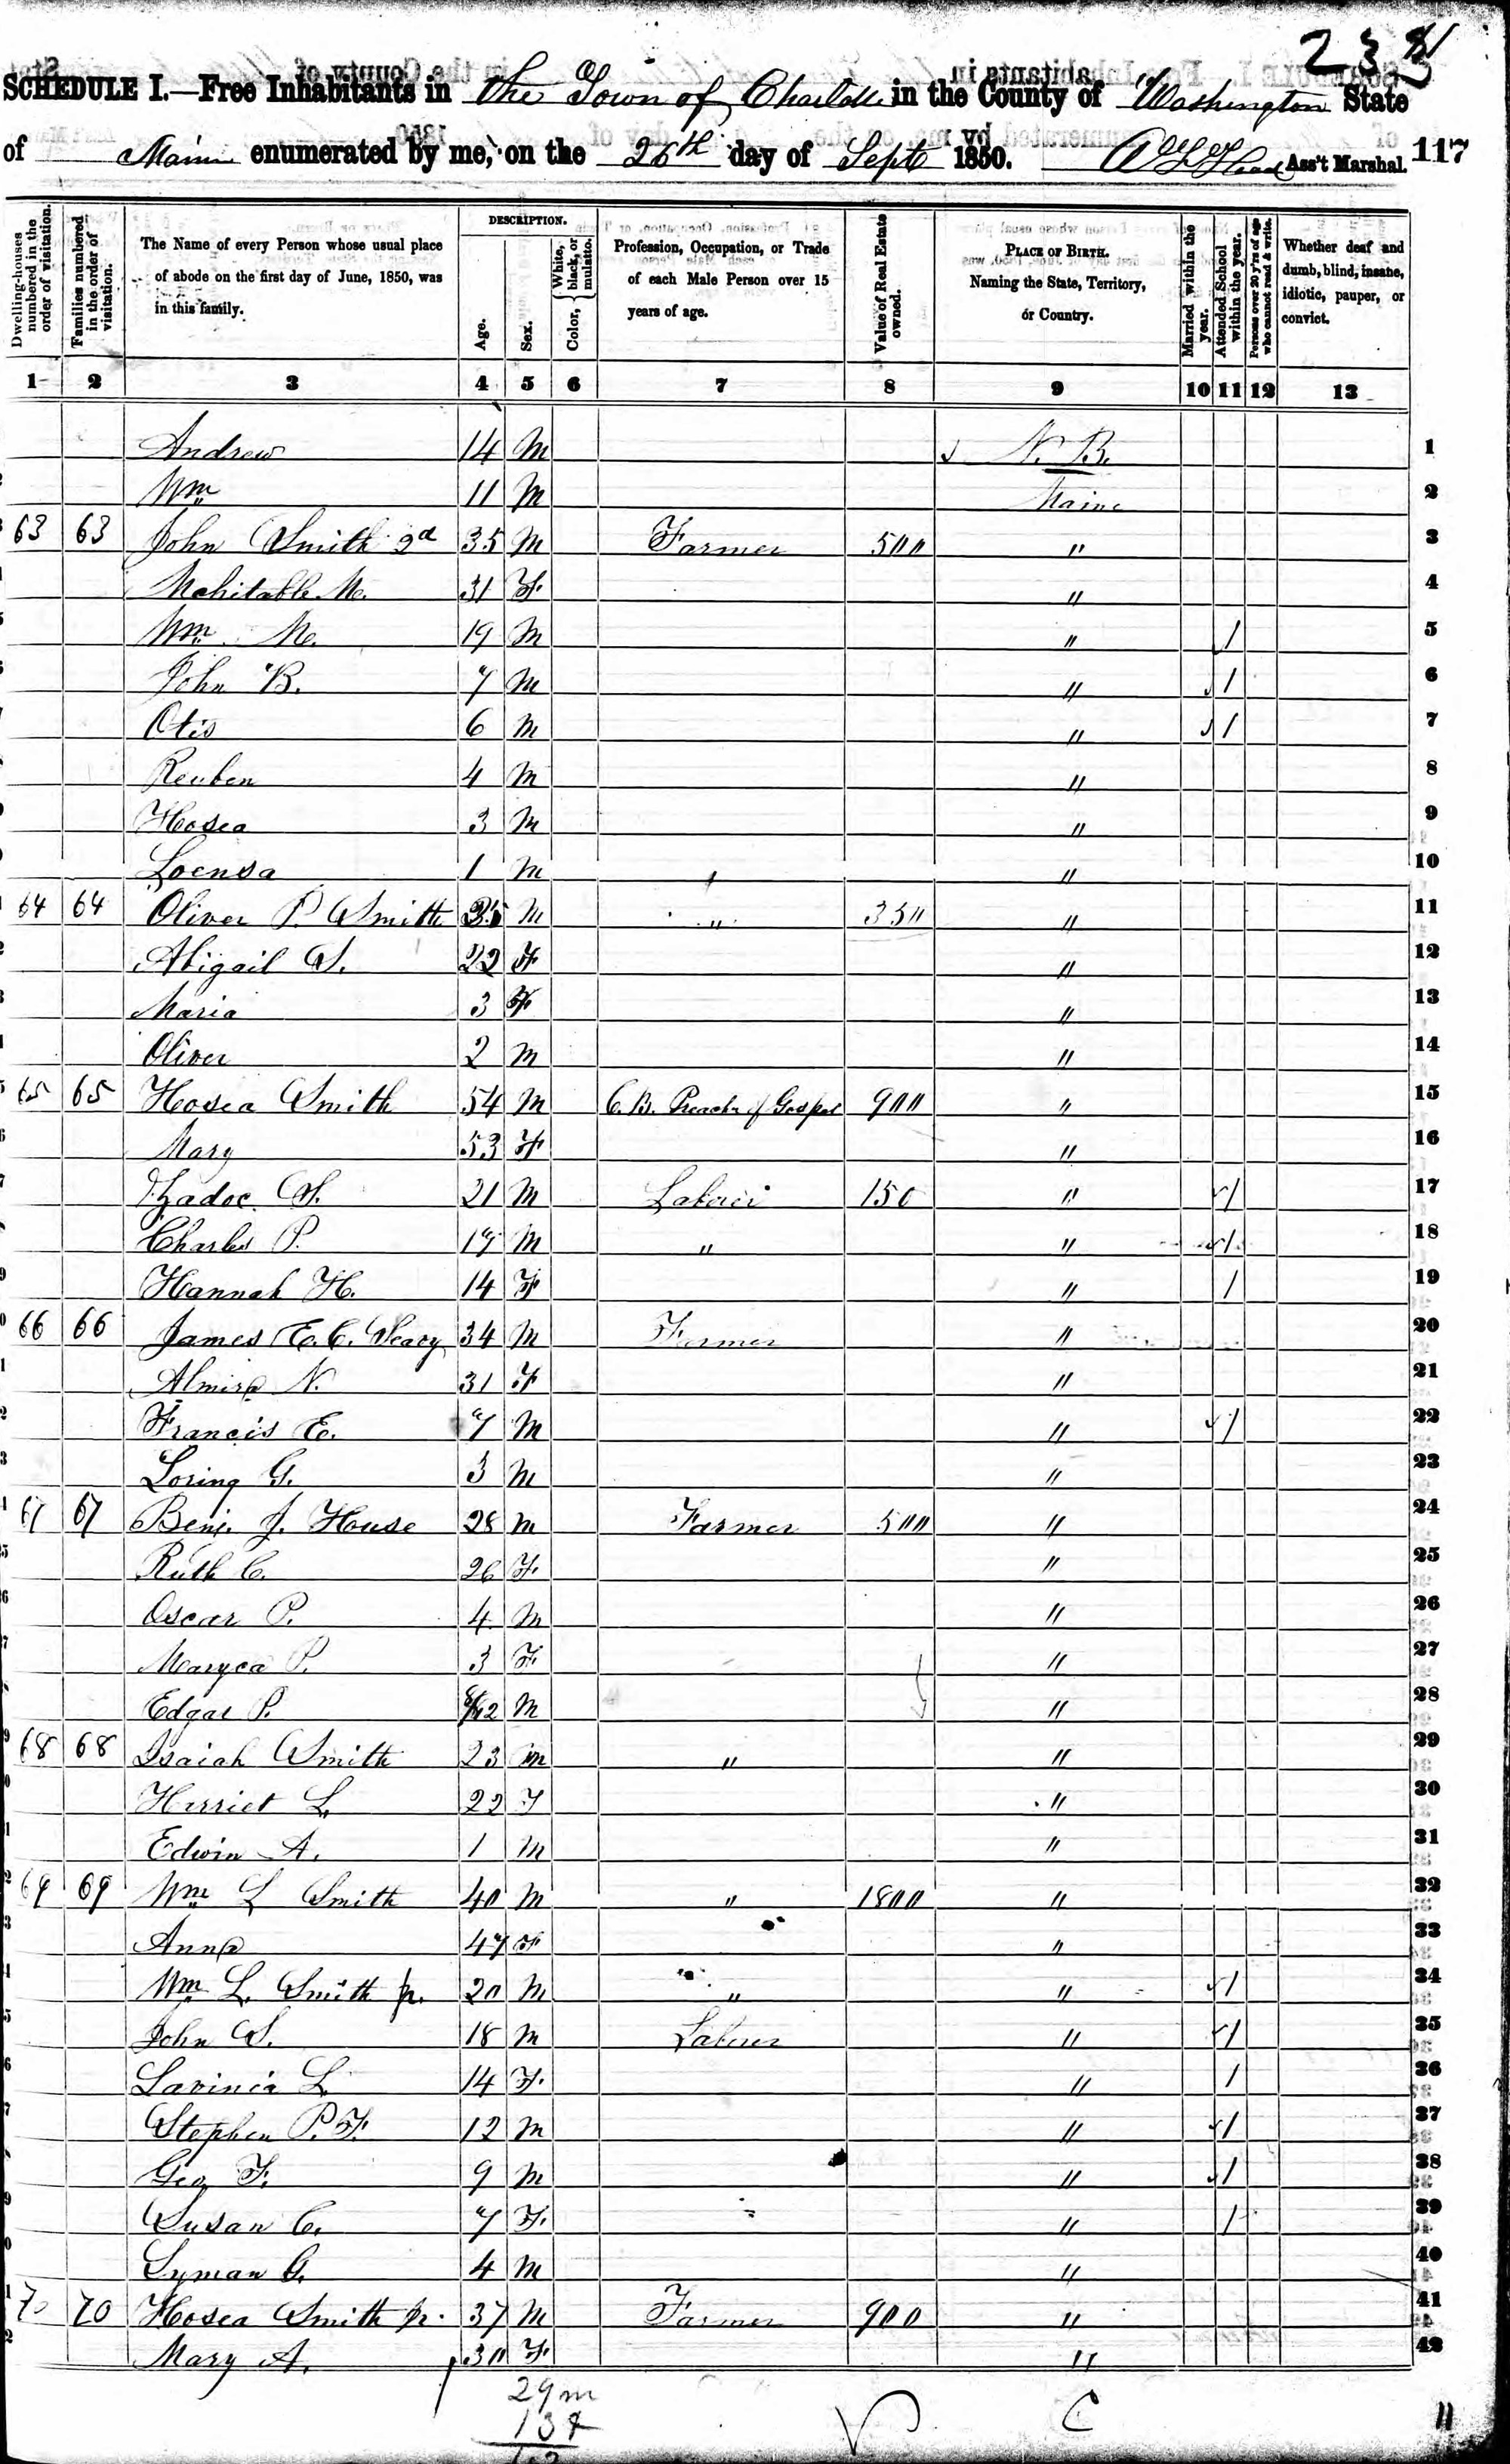 238
SCHEDULE I.—Free Inhabitants in the Town of Charlotte in the County of Washington State
of Maine enumerated by me, on the 26th day of Septr 1850. Ass't Marshal. 117
Dwelling-houses numbered in the order of visitation.
Families numbered in the order of visitation.
The Name of every Person whose usual place of abode on the first day of June, 1850, was in this family.
DESCRIPTION.
Age.
Sex.
Color, { White, black, or mulatto.
Profession, Occupation, or Trade of each Male Person over 15 years of age.
Value of Real Estate owned.
PLACE OF BIRTH. Naming the State, Territory, or Country.
Married within the year.
Attended School within the year.
Persons over 20 y'rs of age who cannot read & write.
Whether deaf and dumb, blind, insane, idiotic, pauper, or convict.
1 2 3 4 5 6 7 8 9 10 11 12 13
Andrew 14 M N. B. 1
Wm 11 M Maine 2
63 63 John Smith 2d 35 M Farmer 500 " 3
Mehitable M. 31 F " 4
Wm M. 19 M " / 5
John B. 7 M " / 6
Otis 6 M " / 7
Reuben 4 M " 8
Hosea 3 M " 9
Loensa 1 M " 10
64 64 Oliver P. Smith 35 M " 350 " 11
Abigail S. 22 F " 12
Maria 3 F " 13
Oliver 2 M " 14
65 65 Hosea Smith 54 M C. B. Preachr of Gospel 900 " 15
Mary 53 F " 16
Zadoc S. 21 M Laborer 150 " / 17
Charles P. 17 M " " / 18
Hannah H. 14 F " / 19
66 66 James E. C. Seavy 34 M Farmer " 20
Almira N. 31 F " 21
Francis E. 7 M " / 22
Loring G. 3 M " 23
67 67 Benj. J. House 28 M Farmer 500 " 24
Ruth C. 26 F " 25
Oscar P. 4 M " 26
Maryca P. 3 F " 27
Edgar P. 8/12 M " 28
68 68 Isaiah Smith 23 M " " 29
Harriet L. 22 F " 30
Edwin A. 1 M " 31
69 69 Wm L Smith 40 M " 1800 " 32
Anna 47 F " 33
Wm L. Smith jr. 20 M " " / 34
John S. 18 M Laborer " / 35
Lavinia L. 14 F " / 36
Stephen P. F. 12 M " / 37
Geo F. 9 M " / 38
Susan C. 7 F " / 39
Lyman G. 4 M " 40
70 70 Hosea Smith jr. 37 M Farmer 900 " 41
Mary A. 30 F " 42
29 m
13 f